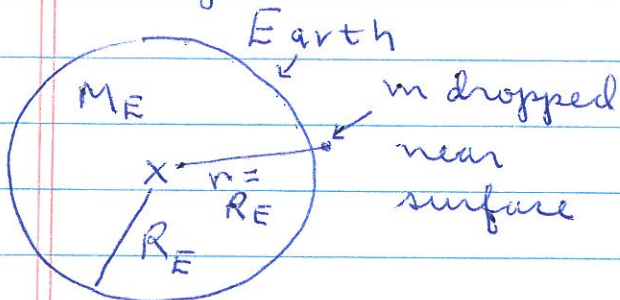 Earth
M_E
m dropped
near
surface
x
r =
R_E
R_E